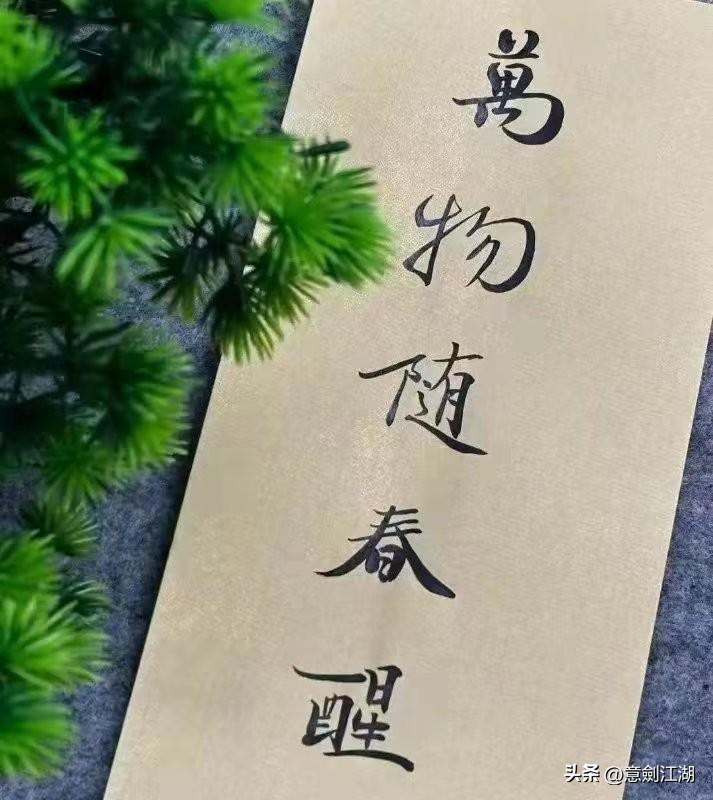 萬物随春醒
头条 @意劍江湖